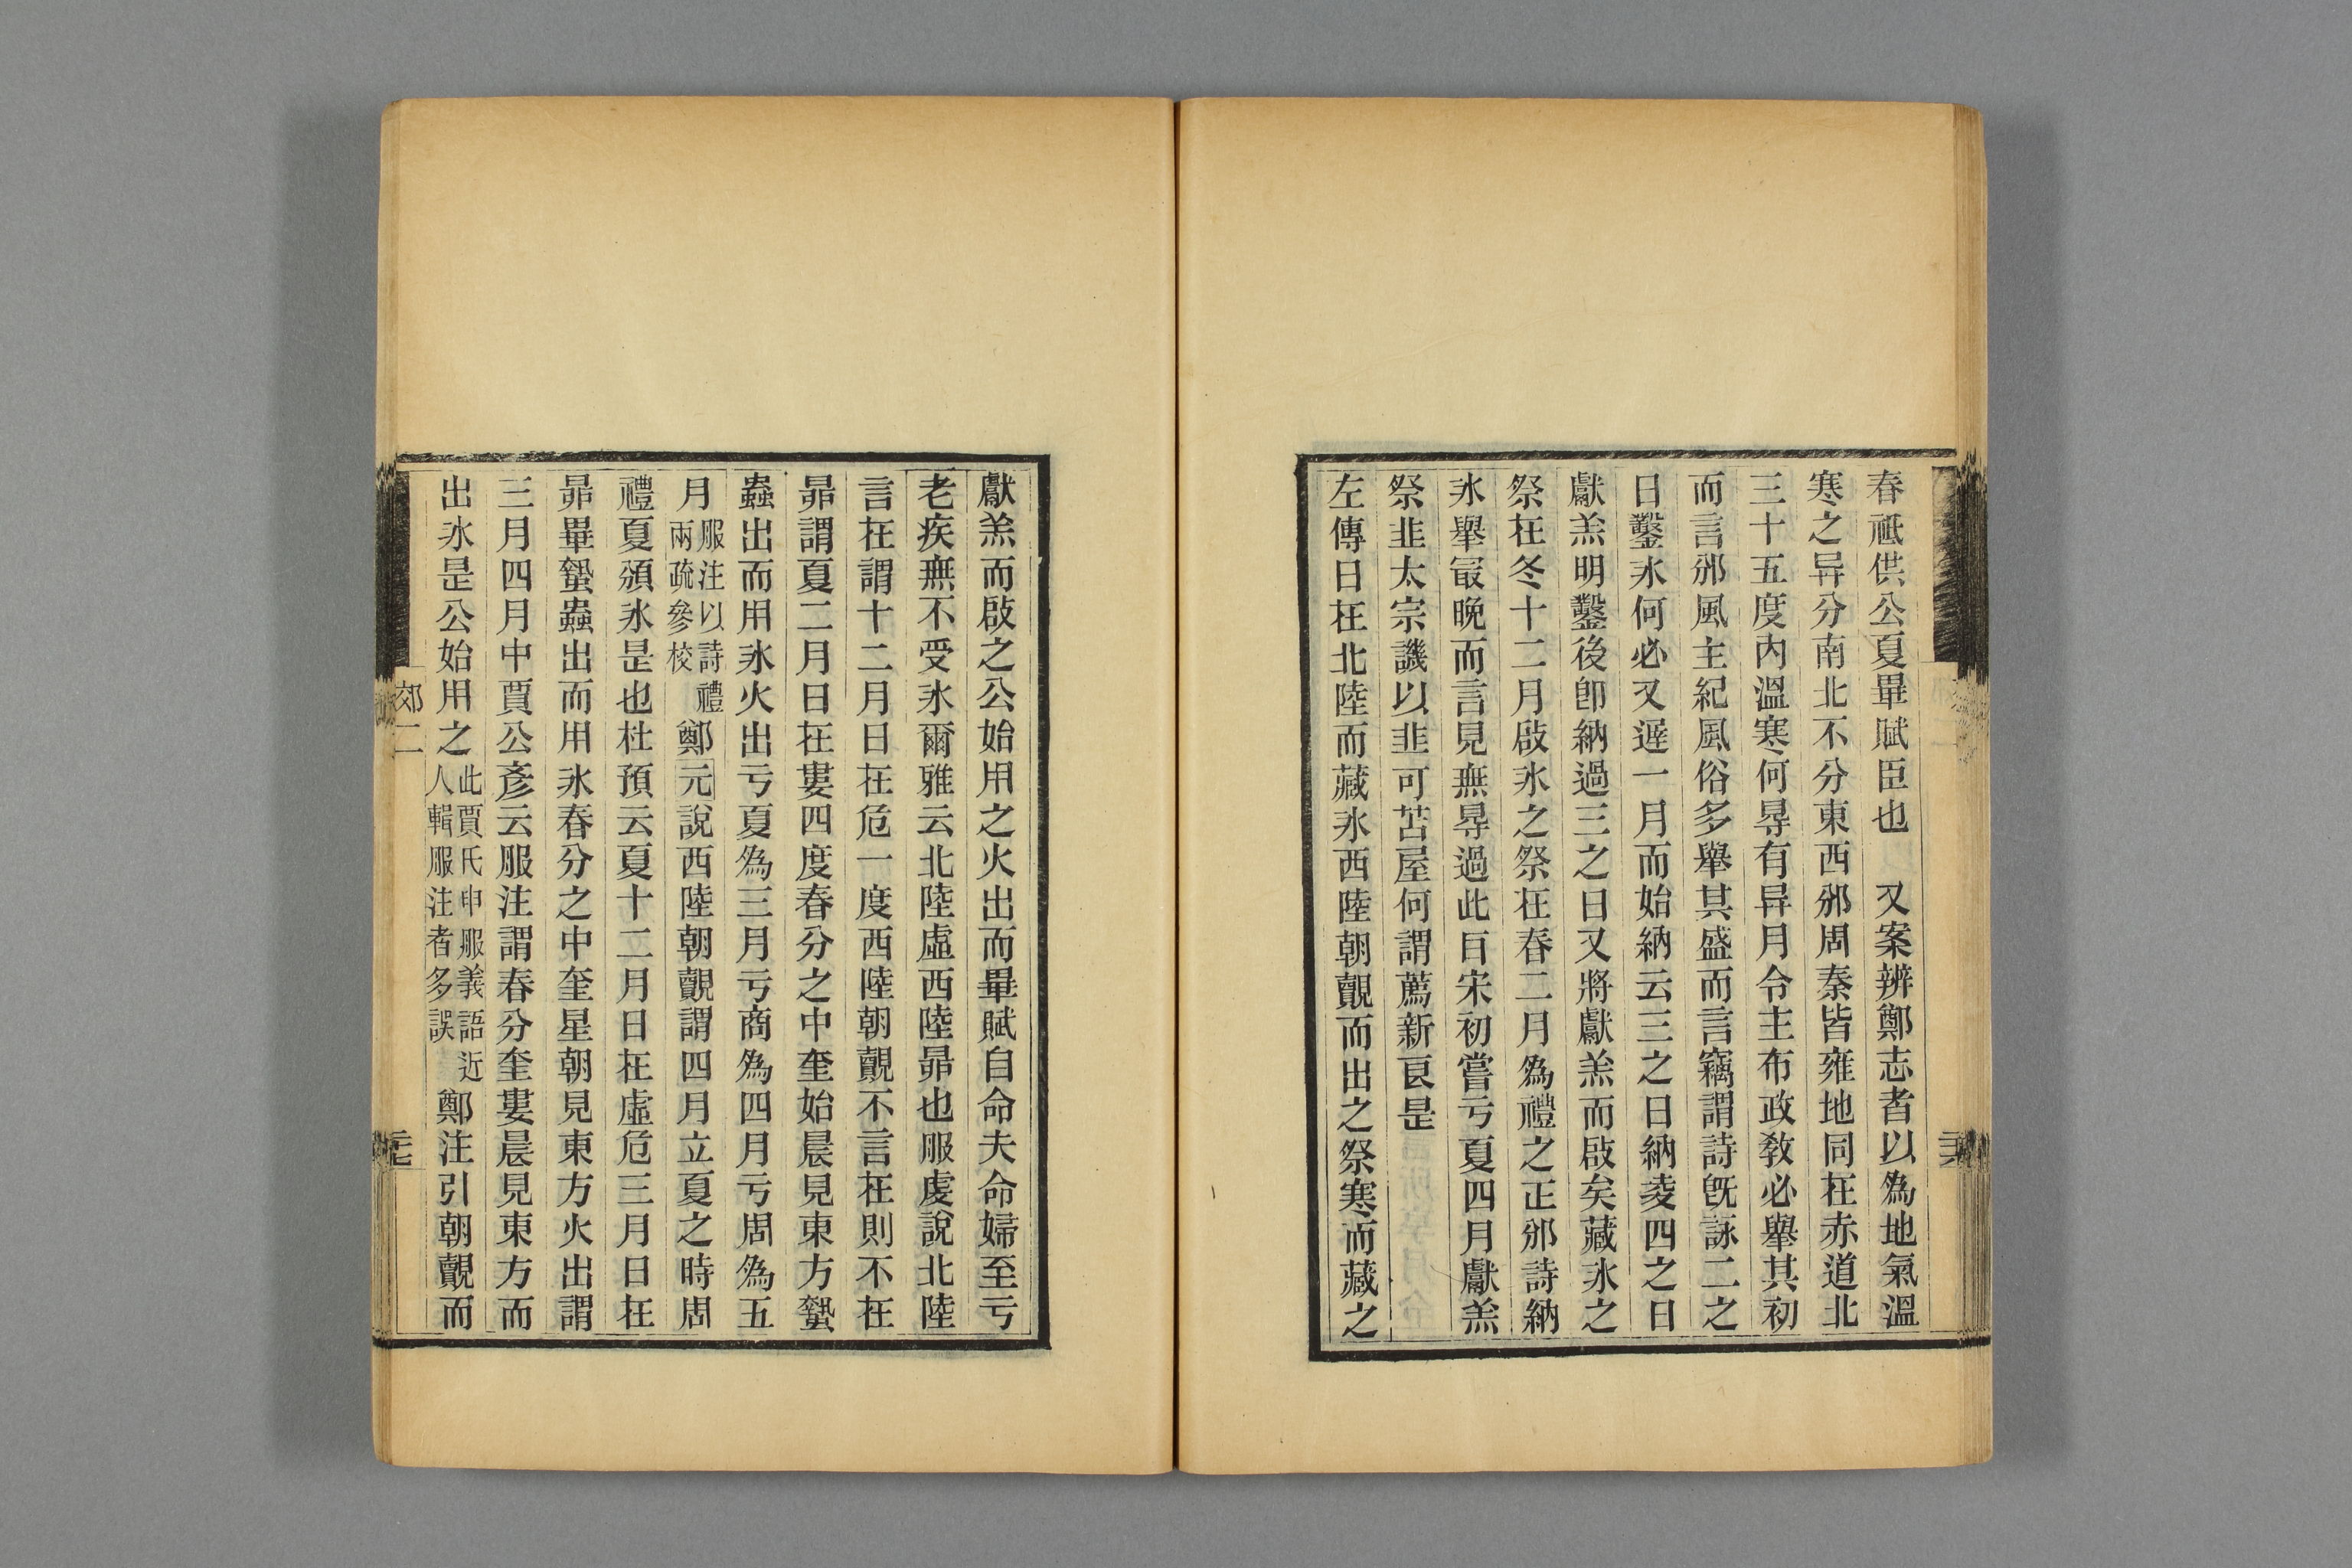 春祗供公夏畢賦臣也　又案辨鄭志者以爲地氣溫
寒之异分南北不分東西邠周秦皆雍地同在赤道北
三十五度內溫寒何㝵有异月令主布政敎必舉其初
而言邠風主紀風俗多舉其盛而言竊謂詩旣詠二之
日鑿冰何必又遲一月而始納云三之日納凌四之日
獻羔明鑿後卽納過三之日又將獻羔而啟矣藏冰之
祭在冬十二月啟冰之祭在春二月爲禮之正邠詩納
冰舉冣晚而言見無㝵過此㠯宋初嘗亏夏四月獻羔
祭韭太宗譏以韭可苫屋何謂薦新㫐是
左傳日在北陸而藏冰西陸朝覿而出之祭寒而藏之
獻羔而啟之公始用之火出而畢賦自命夫命婦至亏
老疾無不受冰爾雅云北陸虛西陸昴也服虔說北陸
言在謂十二月日在危一度西陸朝覿不言在則不在
昴謂夏二月日在婁四度春分之中奎始晨見東方蟄
蟲出而用冰火出亏夏爲三月亏商爲四月亏周爲五
月服注以詩禮兩疏參校鄭元說西陸朝覿謂四月立夏之時周
禮夏頒冰是也杜預云夏十二月日在虛危三月日在
昴畢蟄蟲出而用冰春分之中奎星朝見東方火出謂
三月四月中賈公彥云服注謂春分奎婁晨見東方而
出冰是公始用之此賈氏申服義語近人輯服注者多誤鄭注引朝覿而
郊二